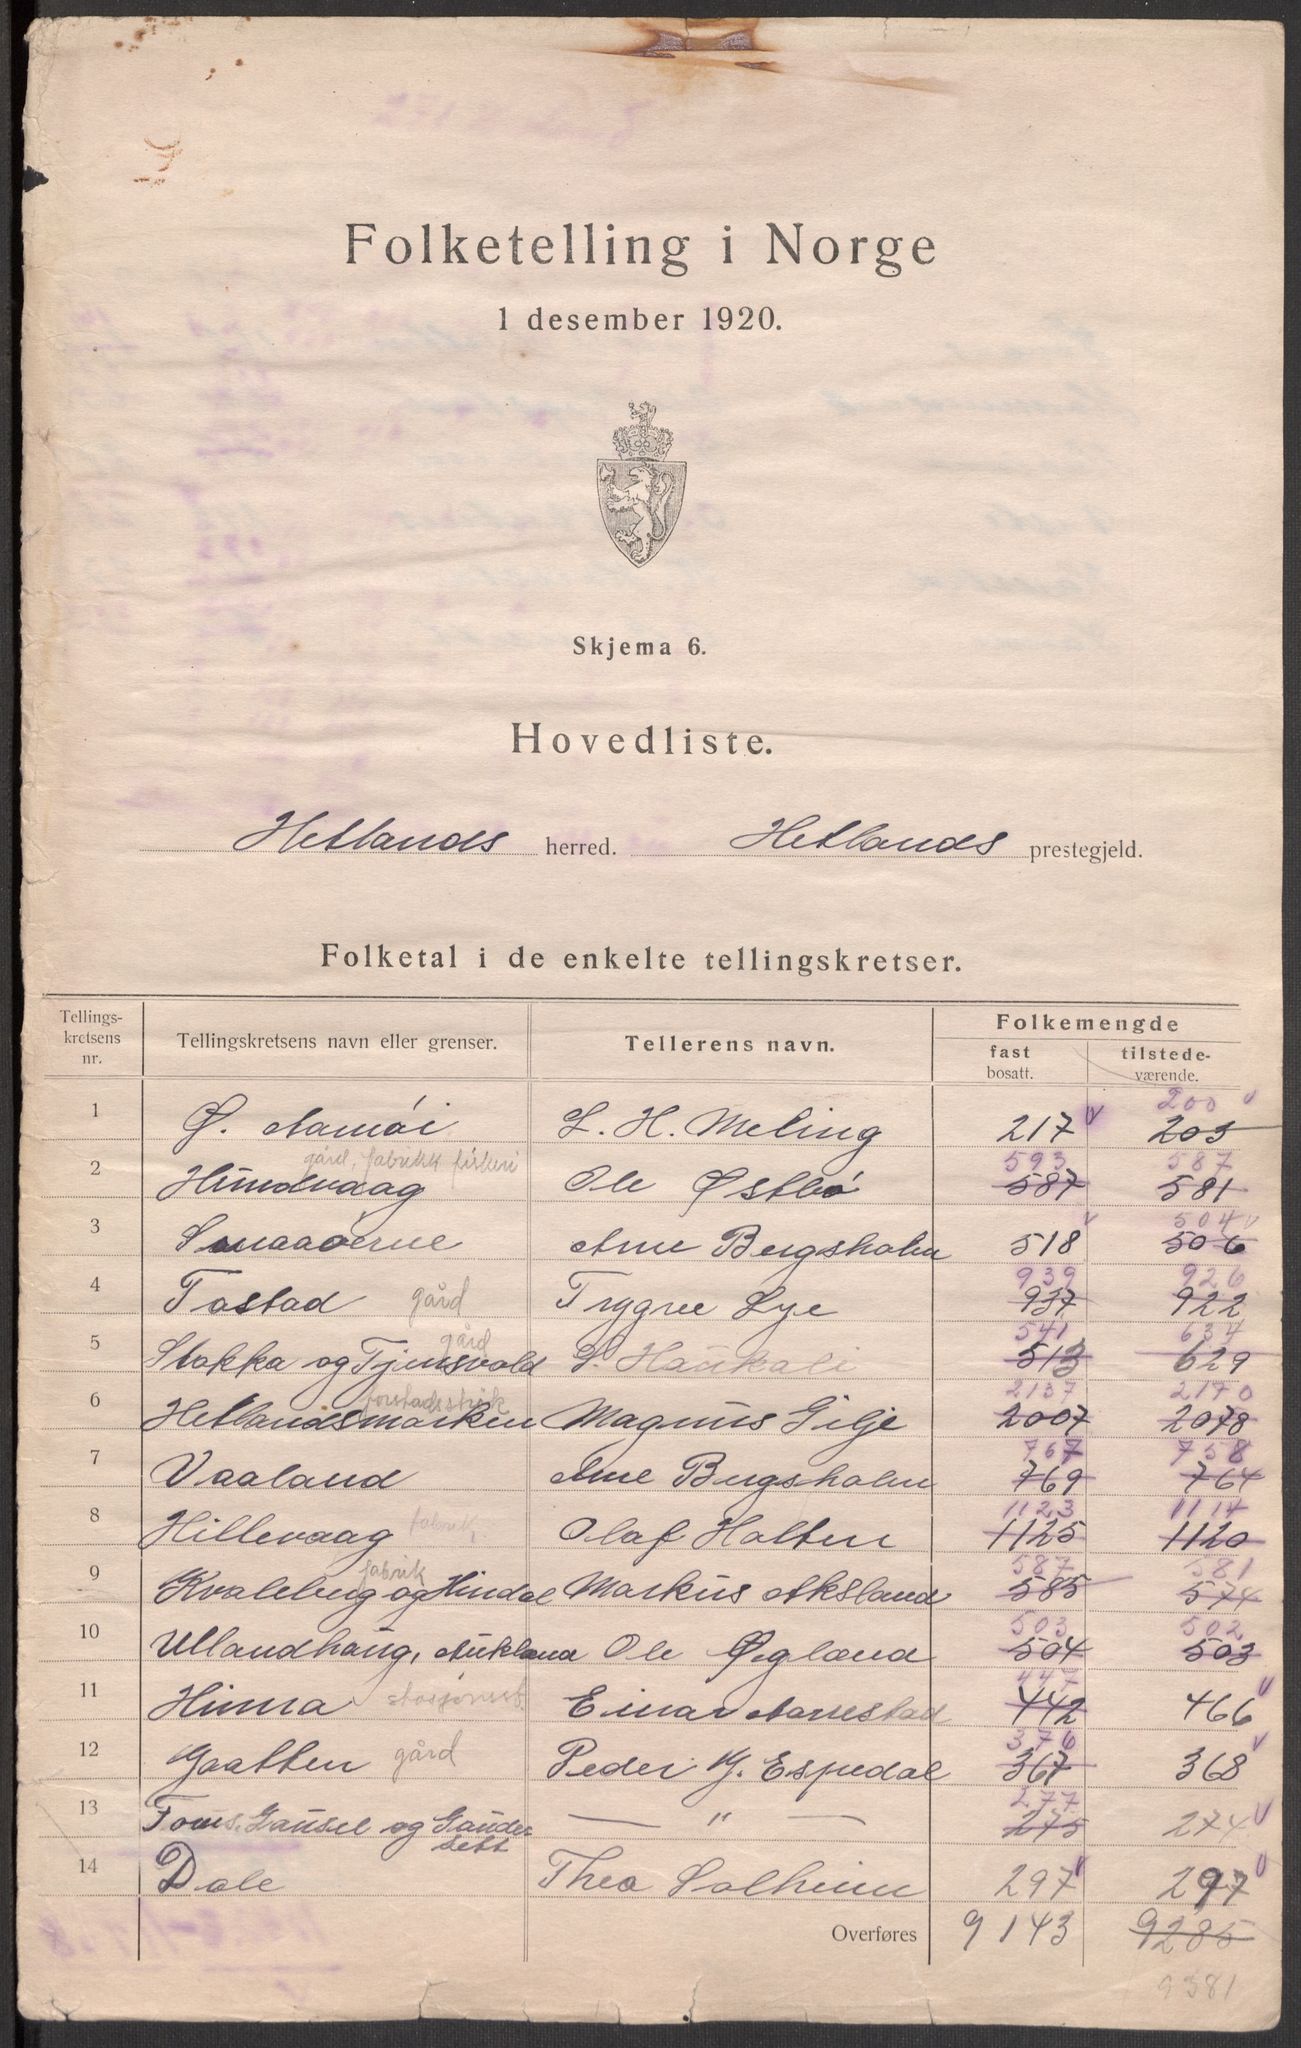 Folketelling i Norge
1 desember 1920.
Skjema 6.
Hovedliste.
Hetlands herred. Hetlands prestegjeld.
Folketal i de enkelte tellingskretser.
Tellings-kretsens nr. Tellingskretsens navn eller grenser. Tellerens navn. Folkemengde
fast bosatt. tilstede-værende.
200
1 Ø. Aamøi L. H. Meling 217 203
gård, fabrikk fiskeri 593 587
2 Hundvaag Ole Østbø 587 581
504
3 Smaaøerne Arne Bergsholm 518 506
939 926
4 Tastad gård Trygve Lye 937 922
gård 541 634
5 Stokka og Tjensvold S. Haukali 513 629
forstadsstrøk 2137 2170
6 Hetlandsmarken Magnus Gilje 2007 2078
767 758
7 Vaaland Arne Bergsholm 769 764
1123 1114
8 Hillevaag fabrik Olaf Holten 1125 1120
fabrik 587 581
9 Kvaleberg og Hindal Markus Aksland 585 574
503 502
10 Ullandhaug, Aukland Ole Øgland 504 503
447
11 Hinna stasjonsst. Einar Aarrestad 442 466
376
12 Gaatten gård Peder G. Espedal 367 368
277
13 Fors, Gausel og Gauder sett — " — 275 274
14 Dale Thea Solheim 297 297
Overføres 9143 9285
9381